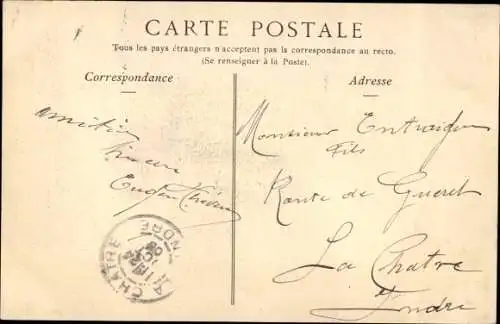 CARTE POSTALE
Tous les pays étrangers n'acceptent pas la correspondance au recto.
(Se renseigner à la Poste).
Correspondance
Adresse
amitiés
Eugen
Monsieur Entraigues
Fils
Route de Gueret
La Chatre
Indre
LA CHATRE
INDRE